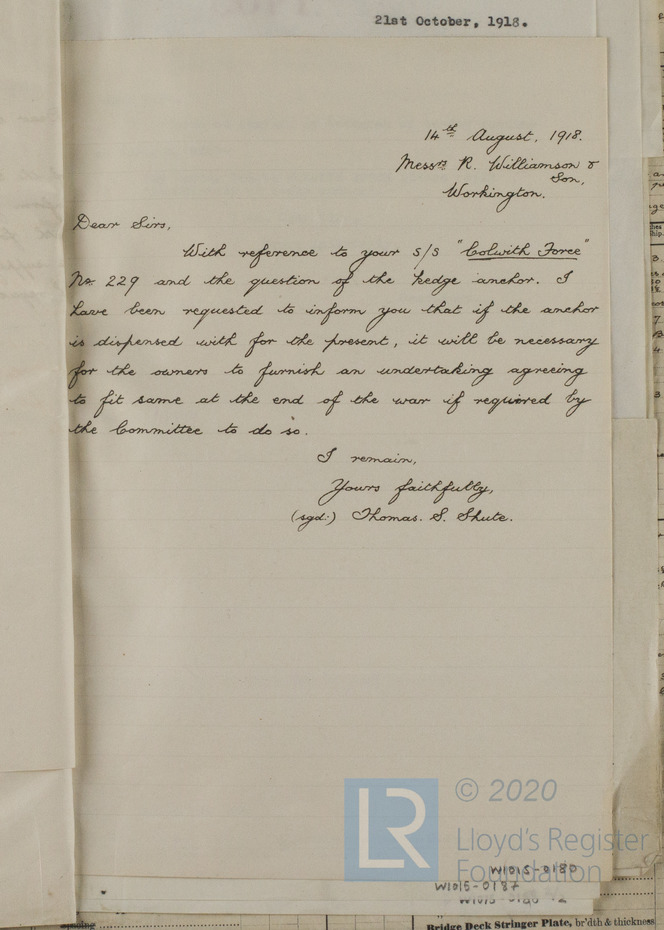 21st October, 1918.
14th August, 1918.
Messrs R. Williamson &
Son,
Workington.
Dear Sirs,
With reference to your s/s "Colwith Force"
No. 229 and the question of the kedge anchor. I
have been requested to inform you that if the anchor
is dispensed with for the present, it will be necessary
for the owners to furnish an undertaking agreeing
to fit same at the end of the war if required by
the Committee to do so.
I remain,
Yours faithfully,
(sgd.) Thomas. S. Shute.
LR
© 2020
Lloyd's Register
Foundation
W1015-0180
W1015-0187
Bridge Deck Stringer Plate, br'dth & thickness